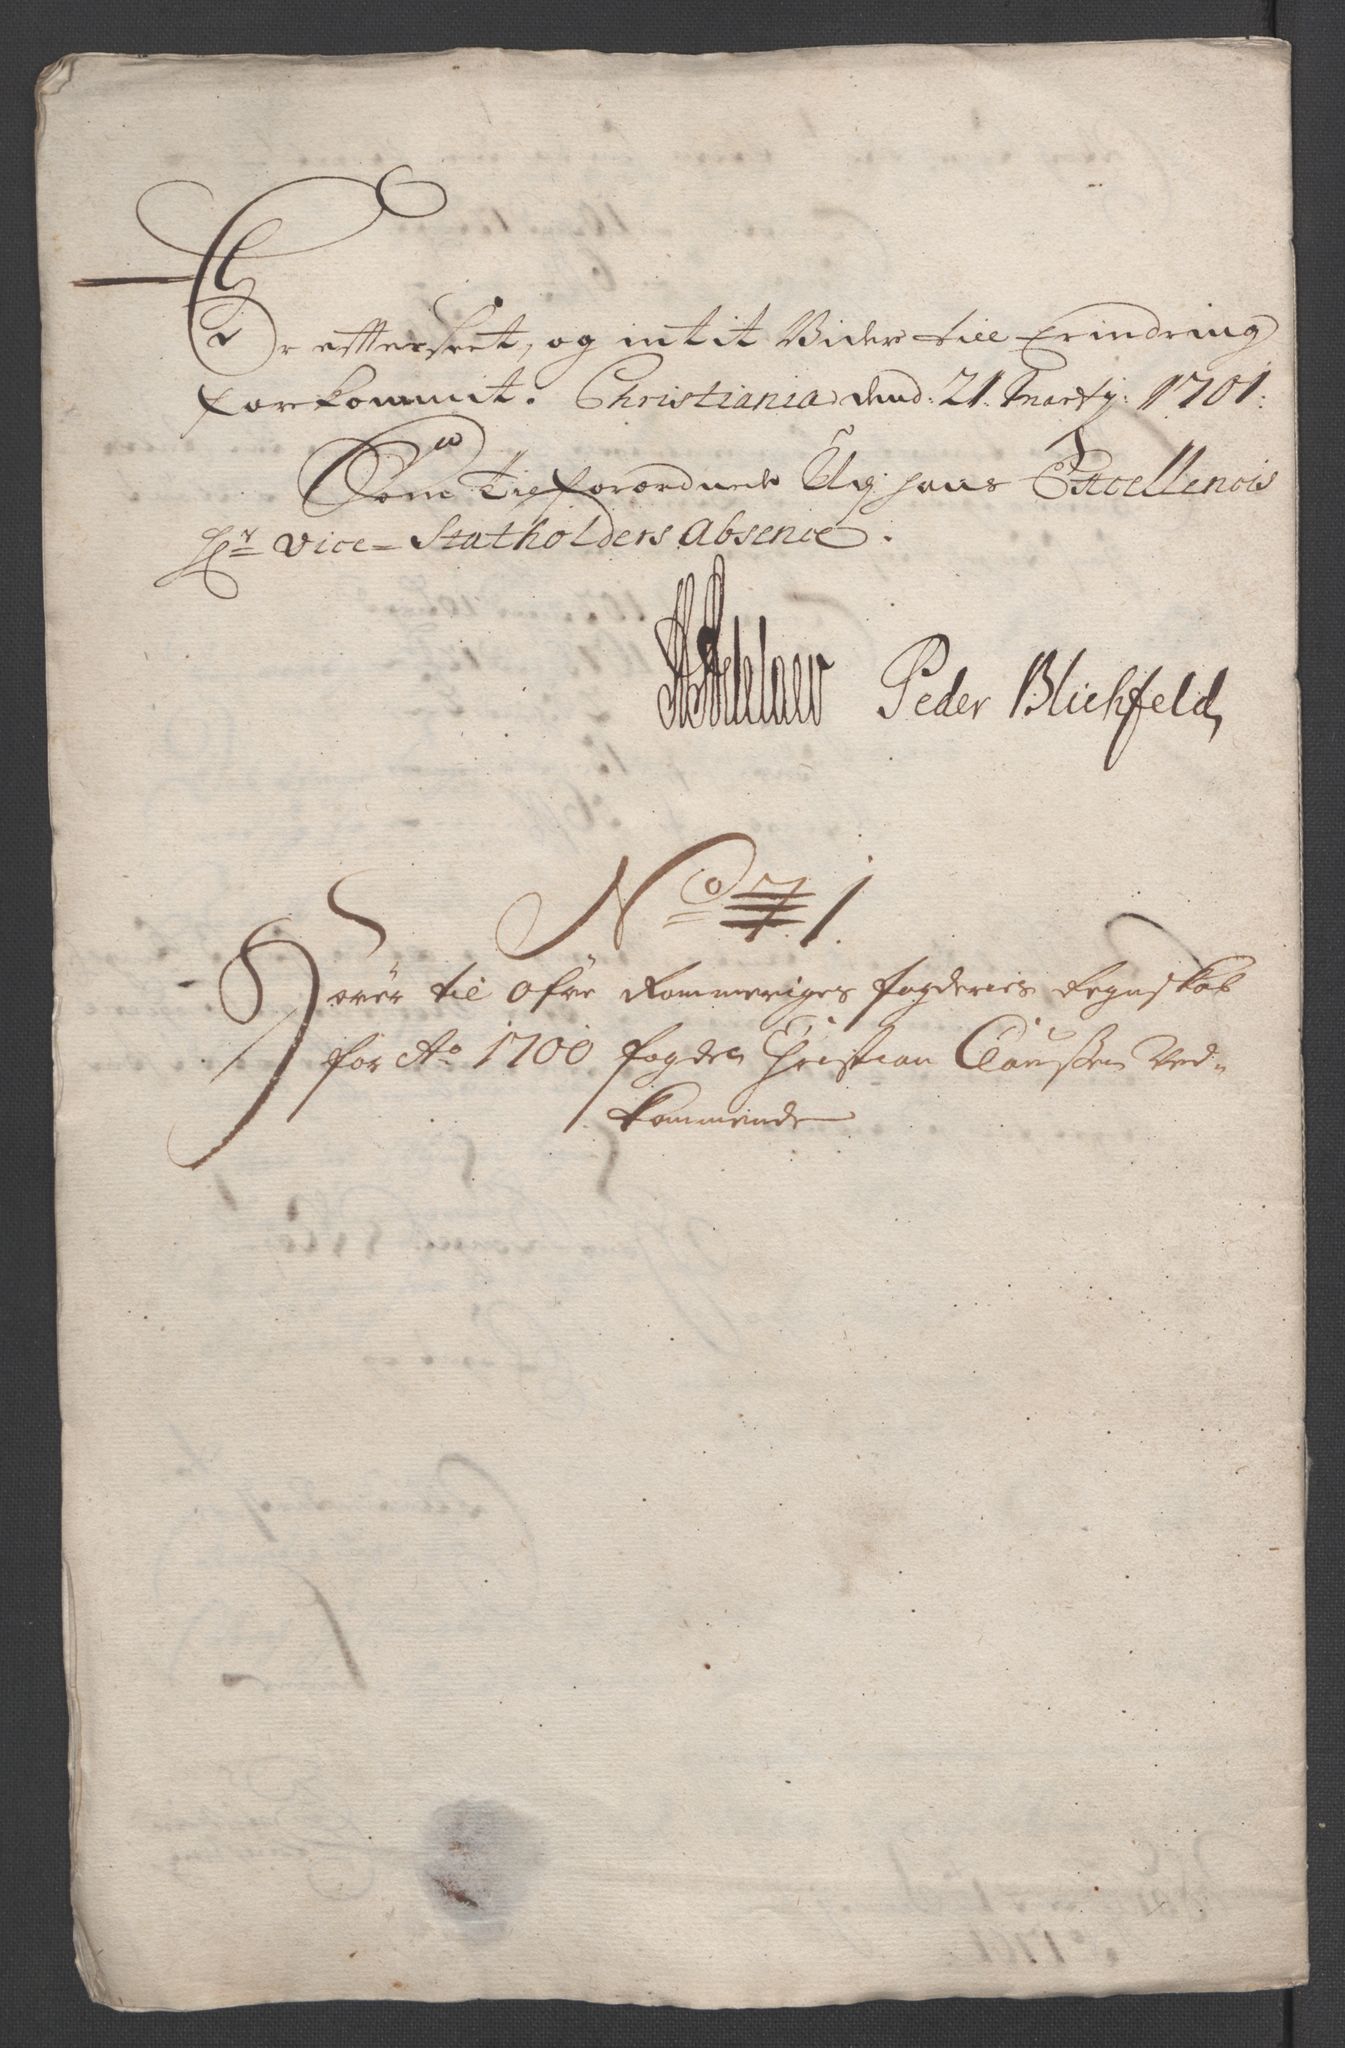 Er efterseet, og intit Vider till Erindring
forekommit. Christiania dend: 21. Marty: 1701.
Som tilforordnede Udj hans Excellences
Hr vice-Statholders Absence.
Peder Blichfeld
No 7 1.
Hører til Øfre Rommeriges fogderies Regnskab
for Ao 1700 fogden Christian Claussen Ved-
kommende